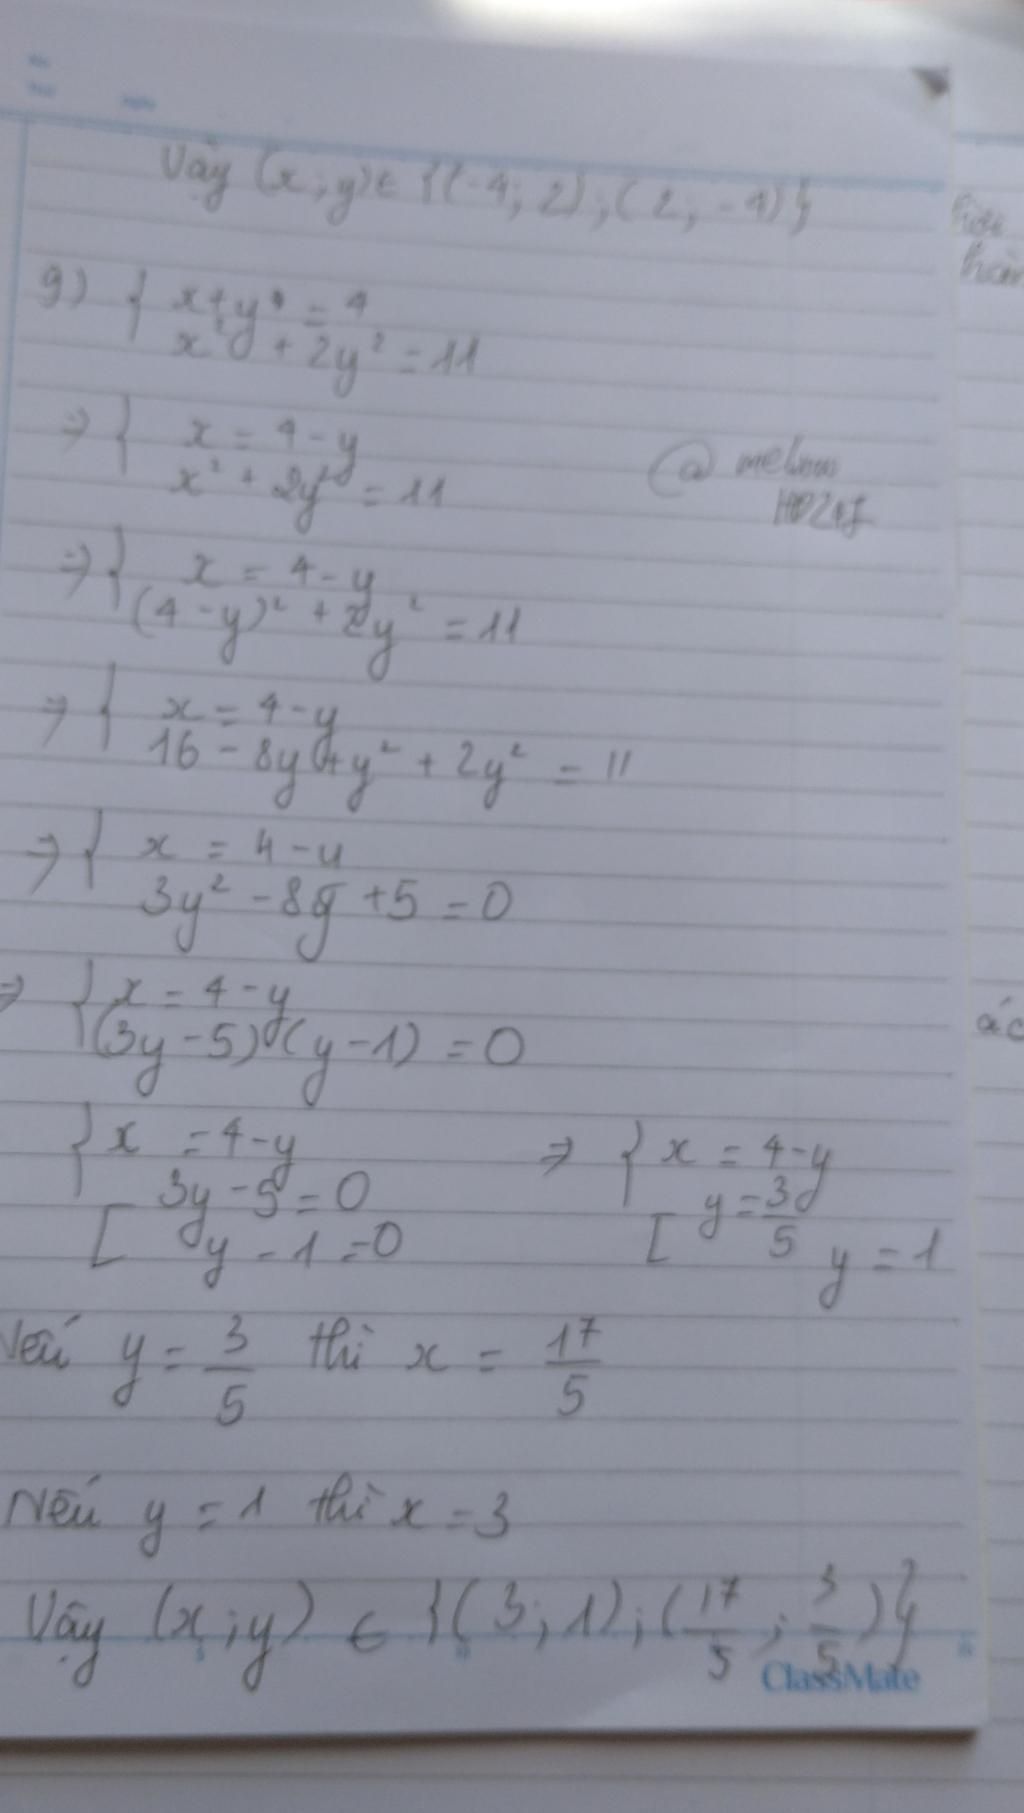 Vậy (x;y) ∈ {(-4; 2); (2; -4)}
g) { x+y = 4
x² + 2y² = 11
⇒ { x = 4 - y
x² + 2y² = 11
@
⇒ { x = 4 - y
(4 - y)² + 2y² = 11
⇒ { x = 4 - y
16 - 8y + y² + 2y² = 11
⇒ { x = 4 - y
3y² - 8y + 5 = 0
⇒ { x = 4 - y
(3y - 5)(y - 1) = 0
{ x = 4 - y ⇒ { x = 4 - y
[ 3y - 5 = 0 [ y = 3/5
y - 1 = 0 y = 1
Nếu y = 3/5 thì x = 17/5
Nếu y = 1 thì x = 3
Vậy (x;y) ∈ {(3; 1); (17/5; 3/5)}
ClassMate